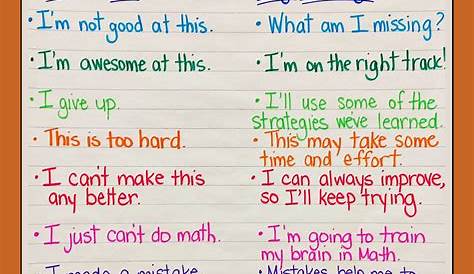 • I'm not good at this.
• What am I missing?
• I'm awesome at this.
• I'm on the right track!
• I give up.
• I'll use some of the
strategies we've learned.
• This is too hard.
• This may take some
time and effort.
• I can't make this
any better.
• I can always improve,
so I'll keep trying.
• I just can't do math.
• I'm going to train
my brain in Math.
• I made a mistake
• Mistakes help me to